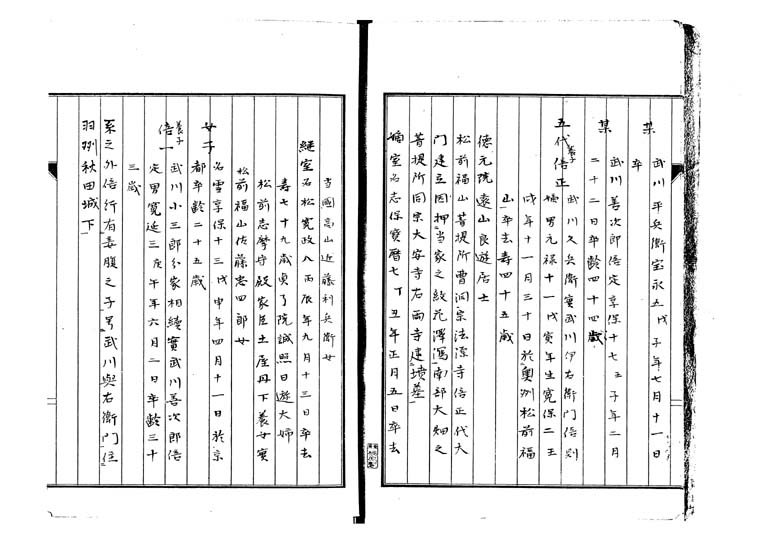 某
武川平兵衛宝永五戊子年七月十一日
卒
某
武川善次郎倍定享保十七壬子年二月
二十二日卒齢四十四歳
五代養子倍正
武川久兵衛實武川伊右衛門倍則
嫡男元禄十一戊寅年生寛保二壬
戌年十一月三十日於奥州松前福
山卒去寿四十五歳
徳元院遠山良遊居士
松前福山菩提所曹洞宗法源寺倍正代大
門建立因押当家之紋花澤瀉南部大畑之
菩提所同宗大安寺右両寺建墳墓
嫡室名志保寳暦七丁丑年正月五日卒去
当國高山近藤利兵衛女
継室名松寛政八丙辰年九月十三日卒去
寿七十九歳貞了院誠照日遊大姉
松前志摩守殿家臣土屋丹下養女實
松前福山佐藤忠四郎女
女子
名雪享保十三戊申年四月十一日於京
都卒齢二十五歳
養子倍一
武川小三郎分家相続實武川善次郎倍
定男寛延三庚午年六月二日卒齢三十
三歳
系之外倍行有妾腹之子号武川與右衛門住
羽州秋田城下